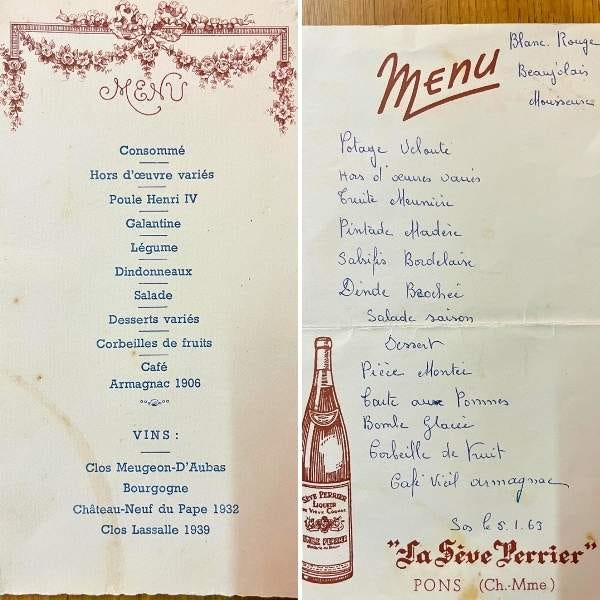 MENU
Consommé
Hors d'œuvre variés
Poule Henri IV
Galantine
Légume
Dindonneaux
Salade
Desserts variés
Corbeilles de fruits
Café
Armagnac 1906
VINS :
Clos Meugeon-D'Aubas
Bourgogne
Château-Neuf du Pape 1932
Clos Lassalle 1939
MENU
Blanc. Rouge
Beaujolais
Mousseux
Potage Velouté
Hors d'œuvres variés
Truite Meunière
Pintade Madère
Salsifis Bordelaise
Dinde Brochée
Salade saison
Dessert
Pièce Montée
Tarte aux Pommes
Bombe Glacée
Corbeille de Fruit
Café Vieil armagnac
Sos le 5.1.63
SÈVE PERRIER
LIQUEUR
AU VIEUX COGNAC
"La Sève Perrier"
PONS (Ch.-Mme)